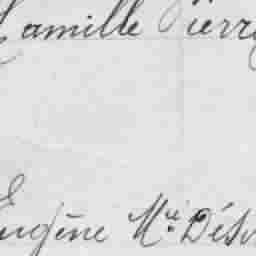 Camille Pierr
Eugène Mie Dés